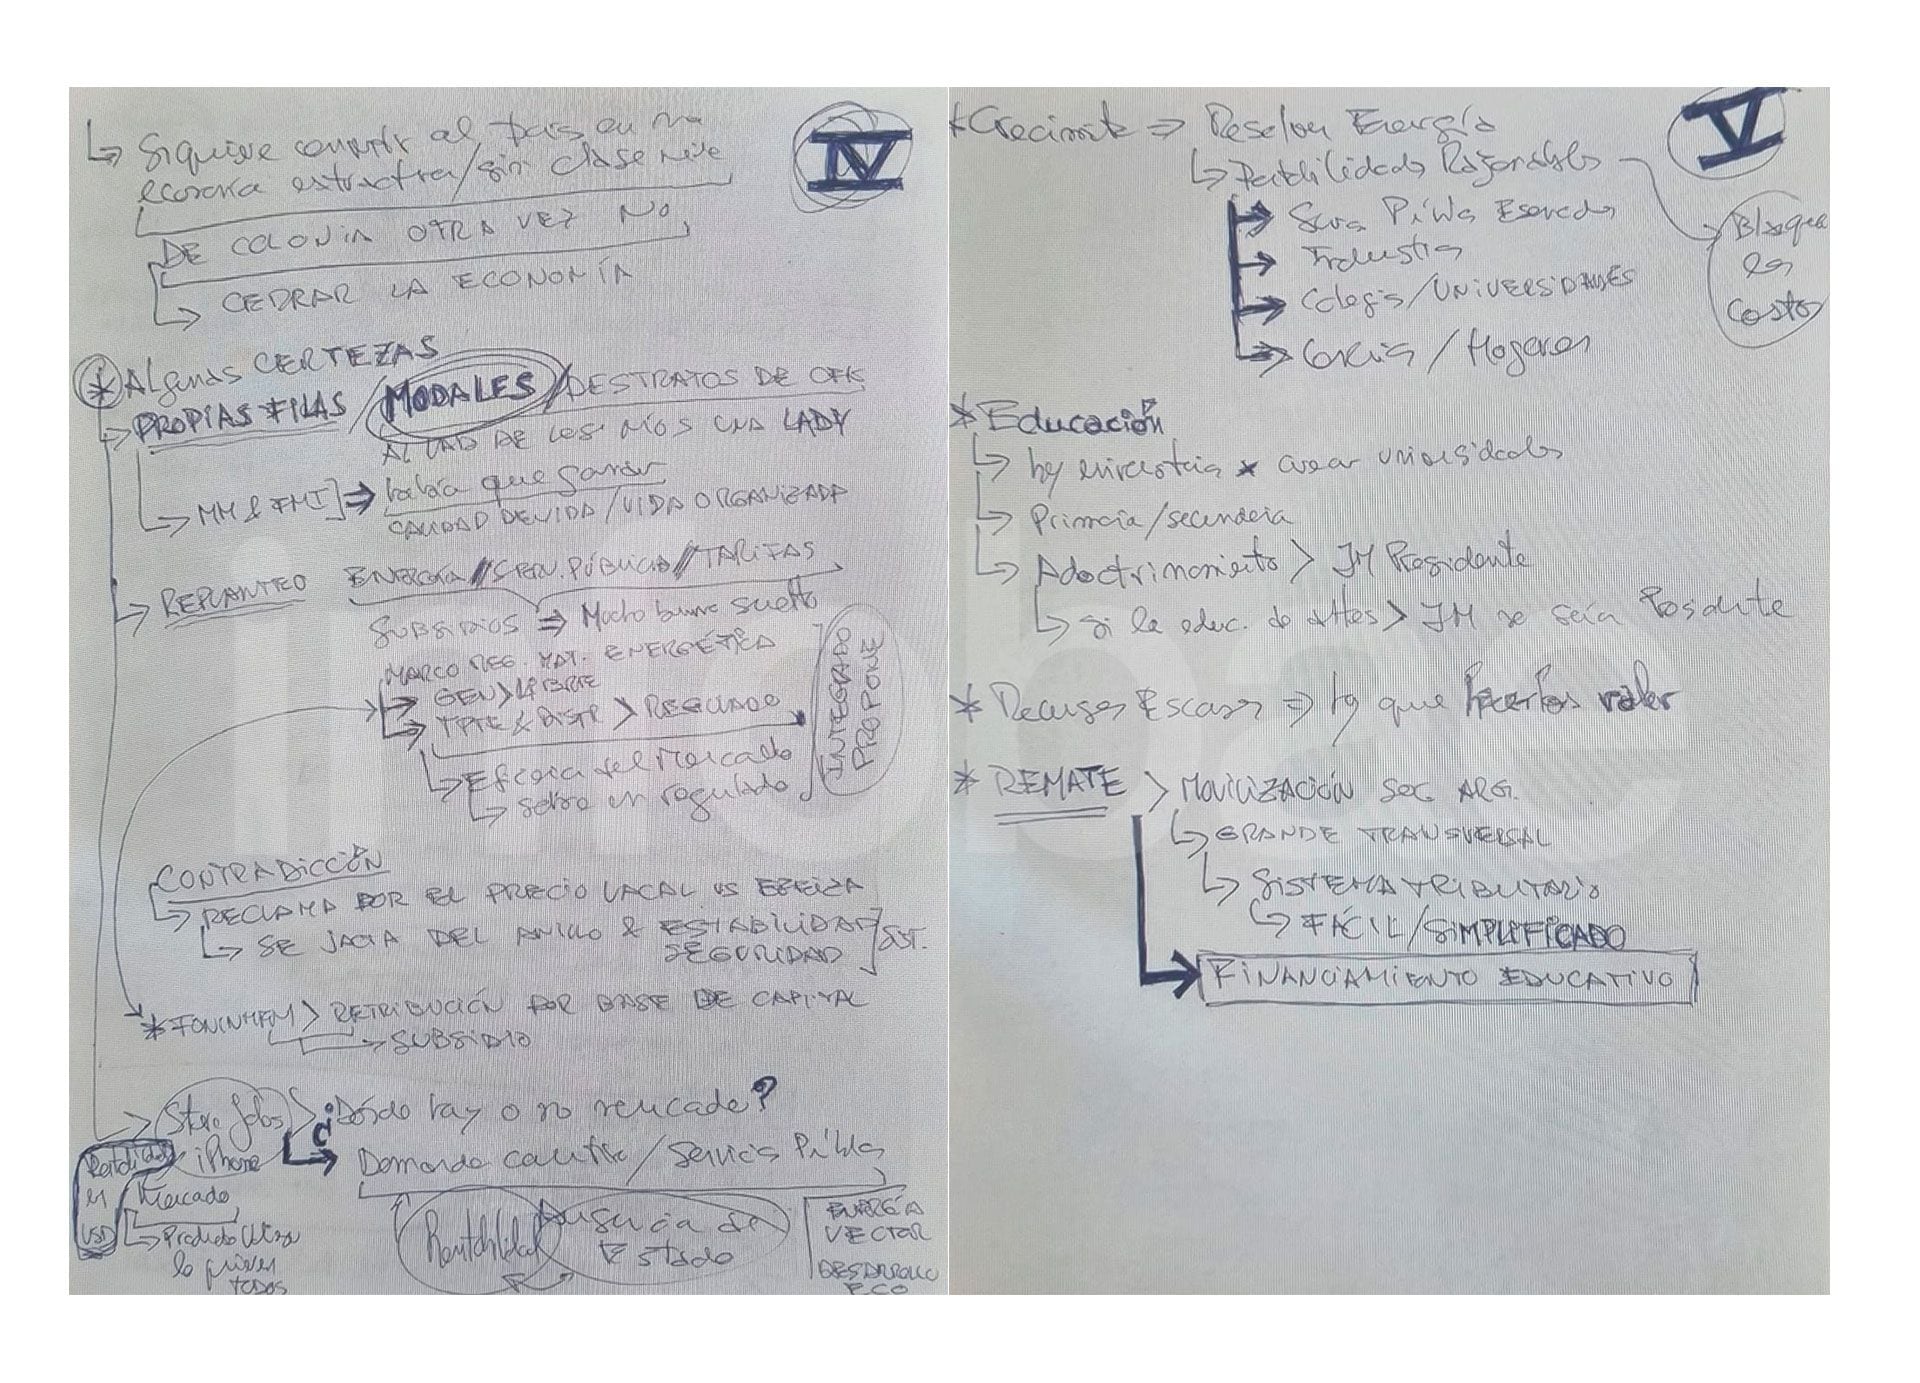 ↳ Si quiere al país en una
economía /sin clase
DE COLONIA OTRA VEZ NO
→ CERRAR LA ECONOMÍA
IV
* Algunas CERTEZAS
→ PROPIAS FILAS / MODALES / DESTRATOS DE CFK
LADY
→ MM & FMI ] ⇒ había que ganar
CALIDAD DE VIDA / VIDA ORGANIZADA
→ REPLANTEO ENERGÍA // SERV. PÚBLICO // TARIFAS
SUBSIDIOS ⇒ Mucho suelto
MARCO REG. MAT. ENERGÉTICA
→ GEN > LIBRE
→ TPTE & DISTR > REGULADO
→ Eficacia del Mercado
→ sobre un regulado
INTEGRADO
PROPONE
CONTRADICCIÓN
→ RECLAMA POR EL PRECIO VS EZEIZA
→ SE JACTA DEL & ESTABILIDAD
SEGURIDAD ] SIST.
* FONINMEM > RETRIBUCIÓN POR BASE DE CAPITAL
→ SUBSIDIO
→ Steve Jobs > ¿Dónde hay o no mercado?
iPhone
→ Demanda cautiva / Servicios Públicos
Rentabilidad
en
USD
Mercado
→ Producto
lo
todos
Rentabilidad
Ausencia de
Estado
ENERGÍA
VECTOR
DESARROLLO
ECO
V
* Crecimiento ⇒ Resolver Energía
↳ Rentabilidades Razonables
→ Bloquea
los
Costos
→ Servs Públicos Esenciales
→ Industrias
→ Colegios/UNIVERSIDADES
→ Comercios / Hogares
* Educación
↳ hay * crear universidades
↳ Primaria/secundaria
↳ Adoctrinamiento > JM Presidente
↳ si la educ. > JM no sería Presidente
* Recursos Escasos ⇒ hay que hacerlos valer
* REMATE > MOVILIZACIÓN SOC ARG.
↳ GRANDE TRANSVERSAL
↳ SISTEMA TRIBUTARIO
↳ FÁCIL/SIMPLIFICADO
→ FINANCIAMIENTO EDUCATIVO
infobae